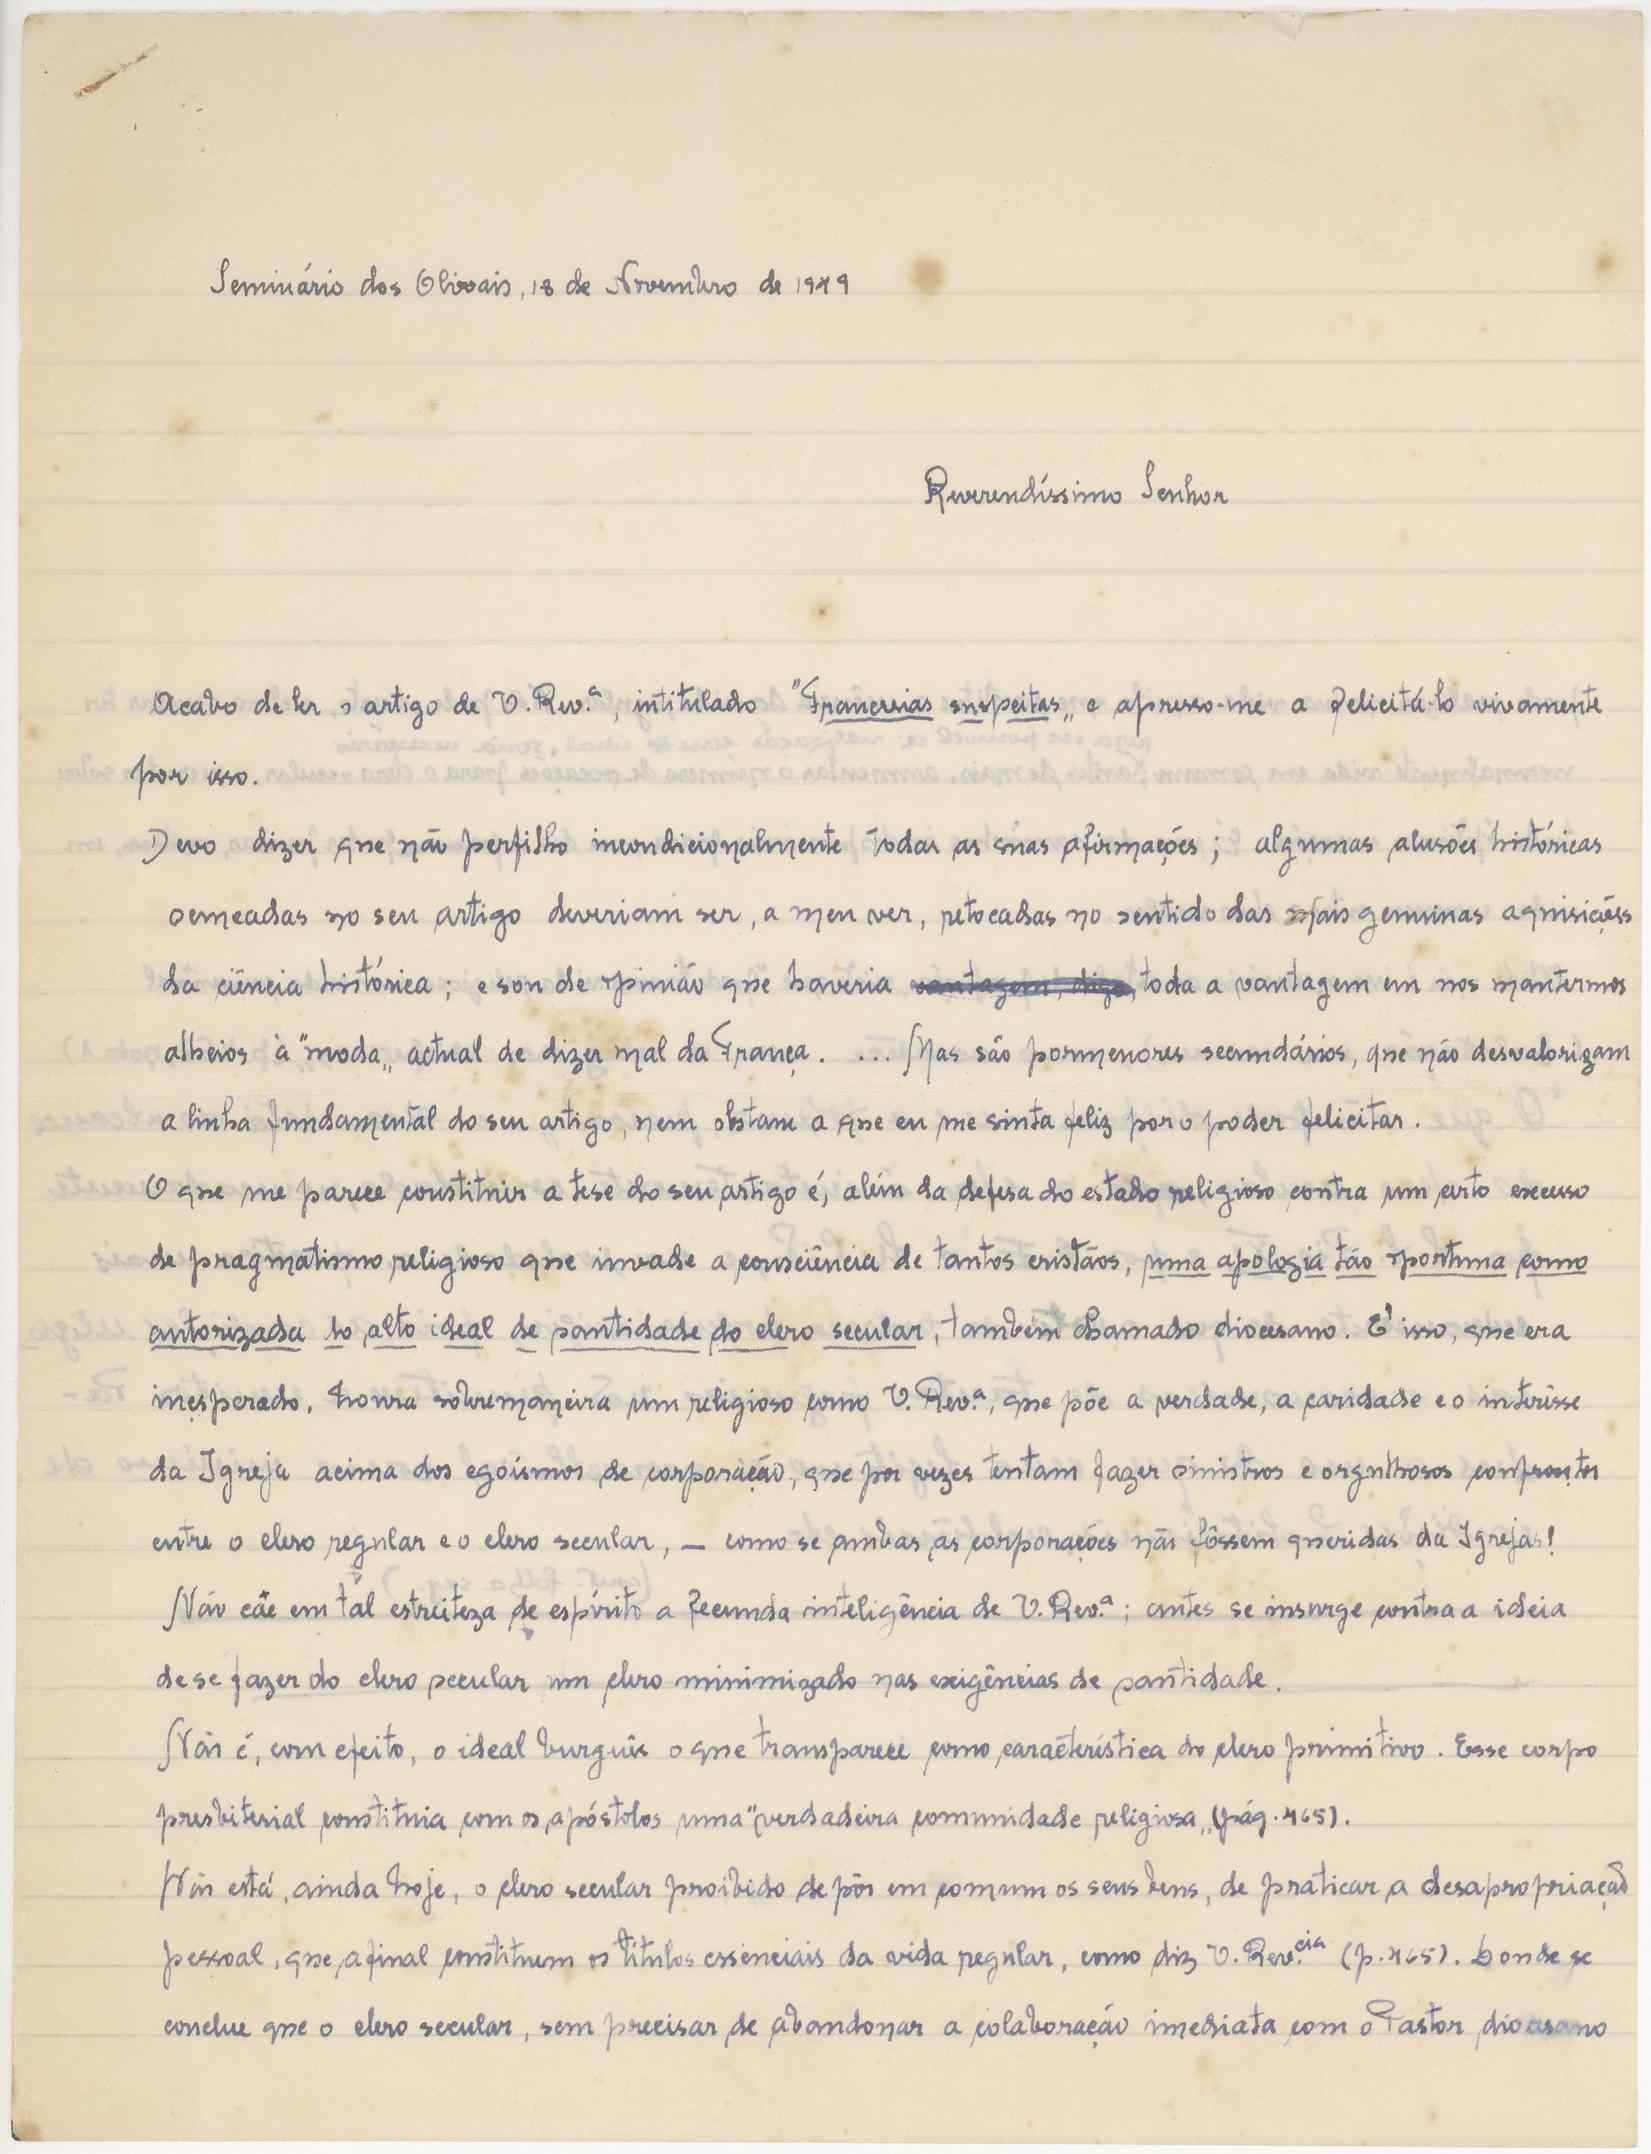 Seminário dos Olivais, 18 de Novembro de 1949
Reverendíssimo Senhor
Acabo de ler o artigo de V. Rev.ª, intitulado "Francesias suspeitas„ e apresso-me a felicitá-lo vivamente
por isso.
Devo dizer que não perfilho incondicionalmente todas as suas afirmações; algumas alusões históricas
semeadas no seu artigo deveriam ser, a meu ver, retocadas no sentido das mais genuinas aquisições
da ciência histórica; e sou de opinião que haveria vantagem, digo, toda a vantagem em nos mantermos
alheios à "moda„ actual de dizer mal da França. ... Mas são pormenores secundários, que não desvalorizam
a linha fundamental do seu artigo, nem obstam a que eu me sinta feliz por o poder felicitar.
O que me parece constituir a tese do seu artigo é, além da defesa do estado religioso contra um certo excesso
de pragmatismo religioso que invade a consciência de tantos cristãos, uma apologia tão oportuna como
autorizada do alto ideal de santidade do clero secular, também chamado diocesano. E' isso, que era
inesperado, honra sobremaneira um religioso como V. Rev.ª, que põe a verdade, a caridade e o interêsse
da Igreja acima dos egoísmos de corporação, que por vezes tentam fazer sinistros e orgulhosos confrontos
entre o clero regular e o clero secular, — como se ambas as corporações não fôssem queridas da Igrejas!
Não cáe em tál estreiteza de espírito a fecunda inteligência de V. Rev.ª; antes se insurge contra a ideia
de se fazer do clero secular um clero minimizado nas exigências de santidade.
Não é, com efeito, o ideal burguês o que transparece como característica do clero primitivo. Esse corpo
presbiterial constituia com os apóstolos uma "verdadeira comunidade religiosa„ (pág. 465).
Não está, ainda hoje, o clero secular proibido de pôr em comum os seus bens, de praticar a desapropriação
pessoal, que afinal constituem os titulos essenciais da vida regular, como diz V. Rev.cia (p. 465). Donde se
conclue que o clero secular, sem precisar de abandonar a colaboração imediata com o Pastor diocesano